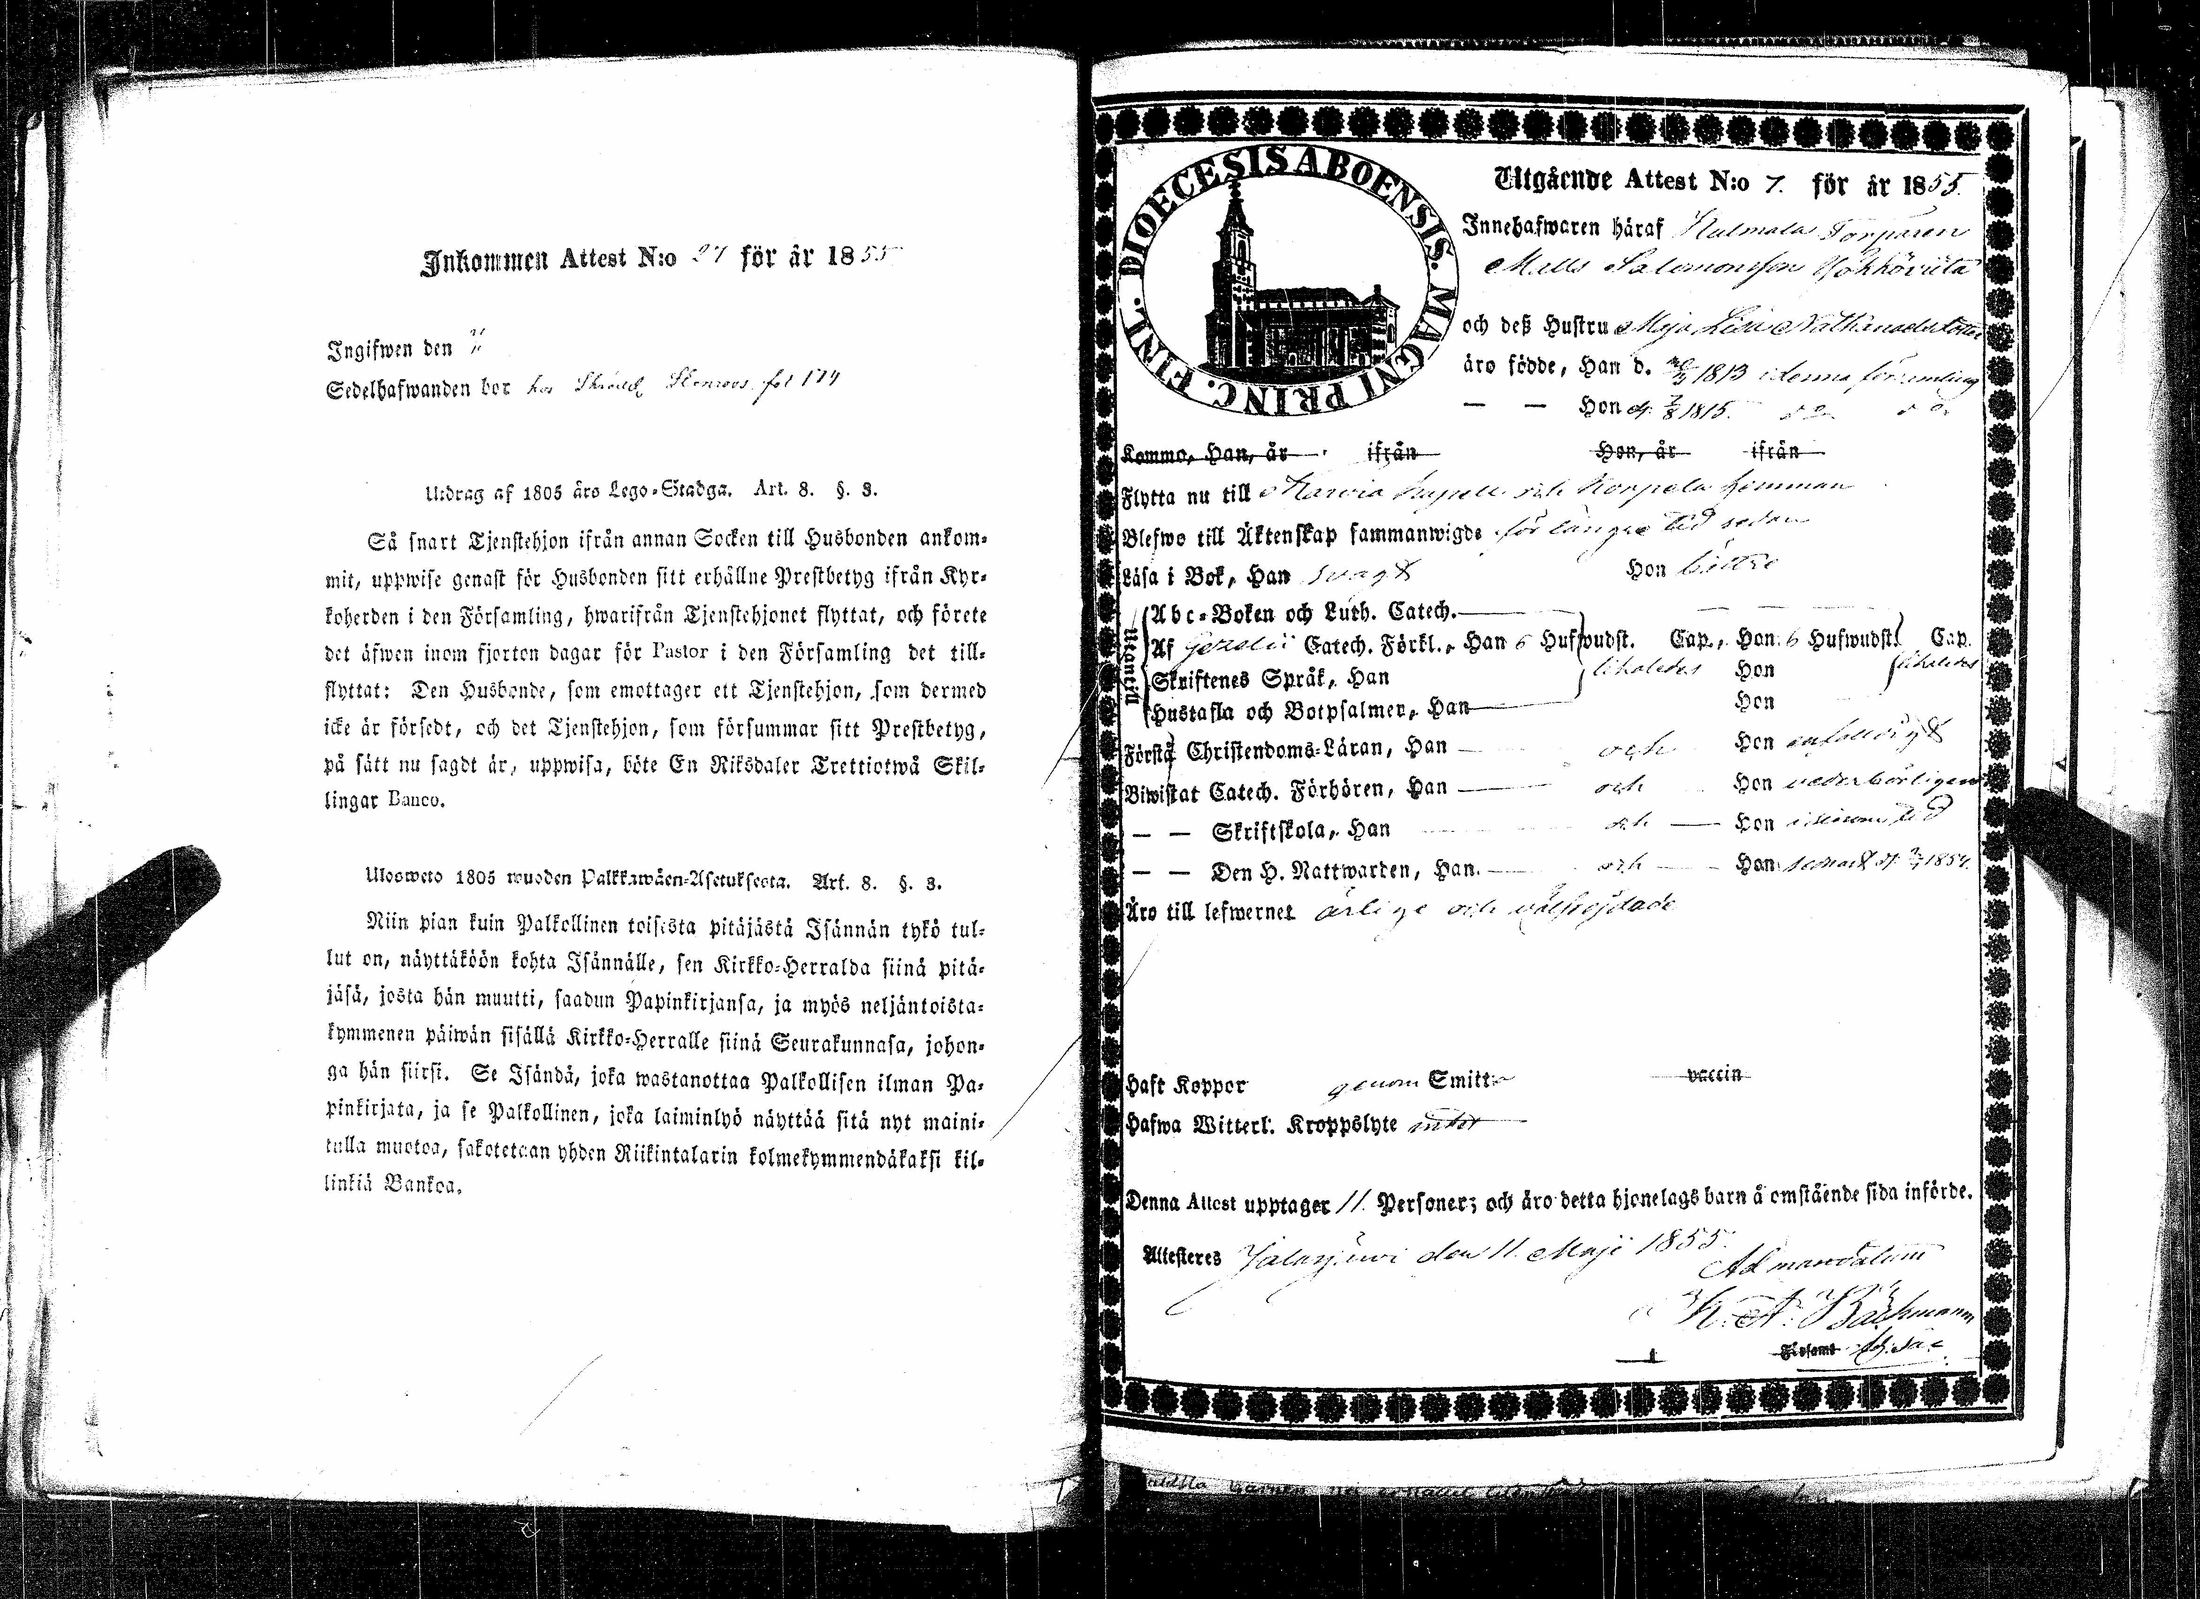 Inkommen Attest N:o 27 för år 1855
Ingifwen den
Sedelhafwanden bor hos Stenroos fol 174
Utdrag af 1805 års Lego-Stadga. Art. 8. §. 3.
Så snart Tjenstehjon ifrån annan Socken till Husbonden ankom-
mit, uppwise genast för Husbonden sitt erhållne Prestbetyg ifrån Kyr-
koherden i den Församling, hwarifrån Tjenstehjonet flyttat, och förete
det äfwen inom fjorton dagar för Pastor i den Församling det till-
flyttat: Den Husbonde, som emottager ett Tjenstehjon, som dermed
icke är försedt, och det Tjenstehjon, som försummar sitt Prestbetyg,
på sätt nu sagdt är, uppwisa, böte En Riksdaler Trettiotwå Skil-
lingar Banco.
Ulosweto 1805 wuoden Palkkawäen-Asetuksesta. Art. 8. §. 3.
Niin pian kuin Palkollinen toisesta pitäjästä Isännän tykö tul-
lut on, näyttäköön kohta Isännälle, sen Kirkko-Herralda siinä pitä-
jäsä, josta hän muutti, saadun Papinkirjansa, ja myös neljäntoista-
kymmenen päiwän sisällä Kirkko-Herralle siinä Seurakunnasa, johon-
ga hän siirsi. Se Isändä, joka wastanottaa Palkollisen ilman Pa-
pinkirjata, ja se Palkollinen, joka laiminlyö näyttää sitä nyt maini-
tulla muotoa, sakotetaan yhden Riikintalarin kolmekymmendäkaksi kil-
linkiä Bankoa.
DIOECESIS ABOENSIS. MAGNI PRINC. FINL.
Utgående Attest N:o 7. för år 1855.
Innehafwaren häraf Hulmala Torparen
Matts Salomonsson
och deß Hustru Maja Lisa Nathanaelsdotter
äro födde, Han d. 1813 i denna församling
— — Hon d. 7/8 1815.
Komme, Han, år ifrån Hon, år ifrån
Flytta nu till Karvia kapell och Korpela hemman
Blefwo till Äktenskap sammanwigde för längre tid sedan
Läsa i Bok, Han svagt Hon bättre
Utanetill
Abc-Boken och Luth. Catech.
Af Gezelii Catech. Förkl., Han 6 Hufwudst. Cap., Hon 6 Hufwudst. Cap.
Skriftenes Språk, Han likaledes Hon likaledes
Hustafla och Botpsalmer, Han Hon
Förstå Christendoms-Läran, Han och Hon enfaldigt
Biwistat Catech. Förhören, Han och Hon vederbörligen
— — Skriftskola, Han och Hon i sinom tid
— — Den H. Nattwarden, Han och Hon senast d. 1854.
Äro till lefwernet ärlige och välfrejdade
Haft Koppor genom Smitta vaccin
Hafwa Witterl. Kroppslyte intet
Denna Attest upptager 11 Personer; och äro detta hjonelags barn å omstående sida införde.
Attesteres Jalasjärvi den 11. Maji 1855.
Ad mandatum
K. A. Bäckmann